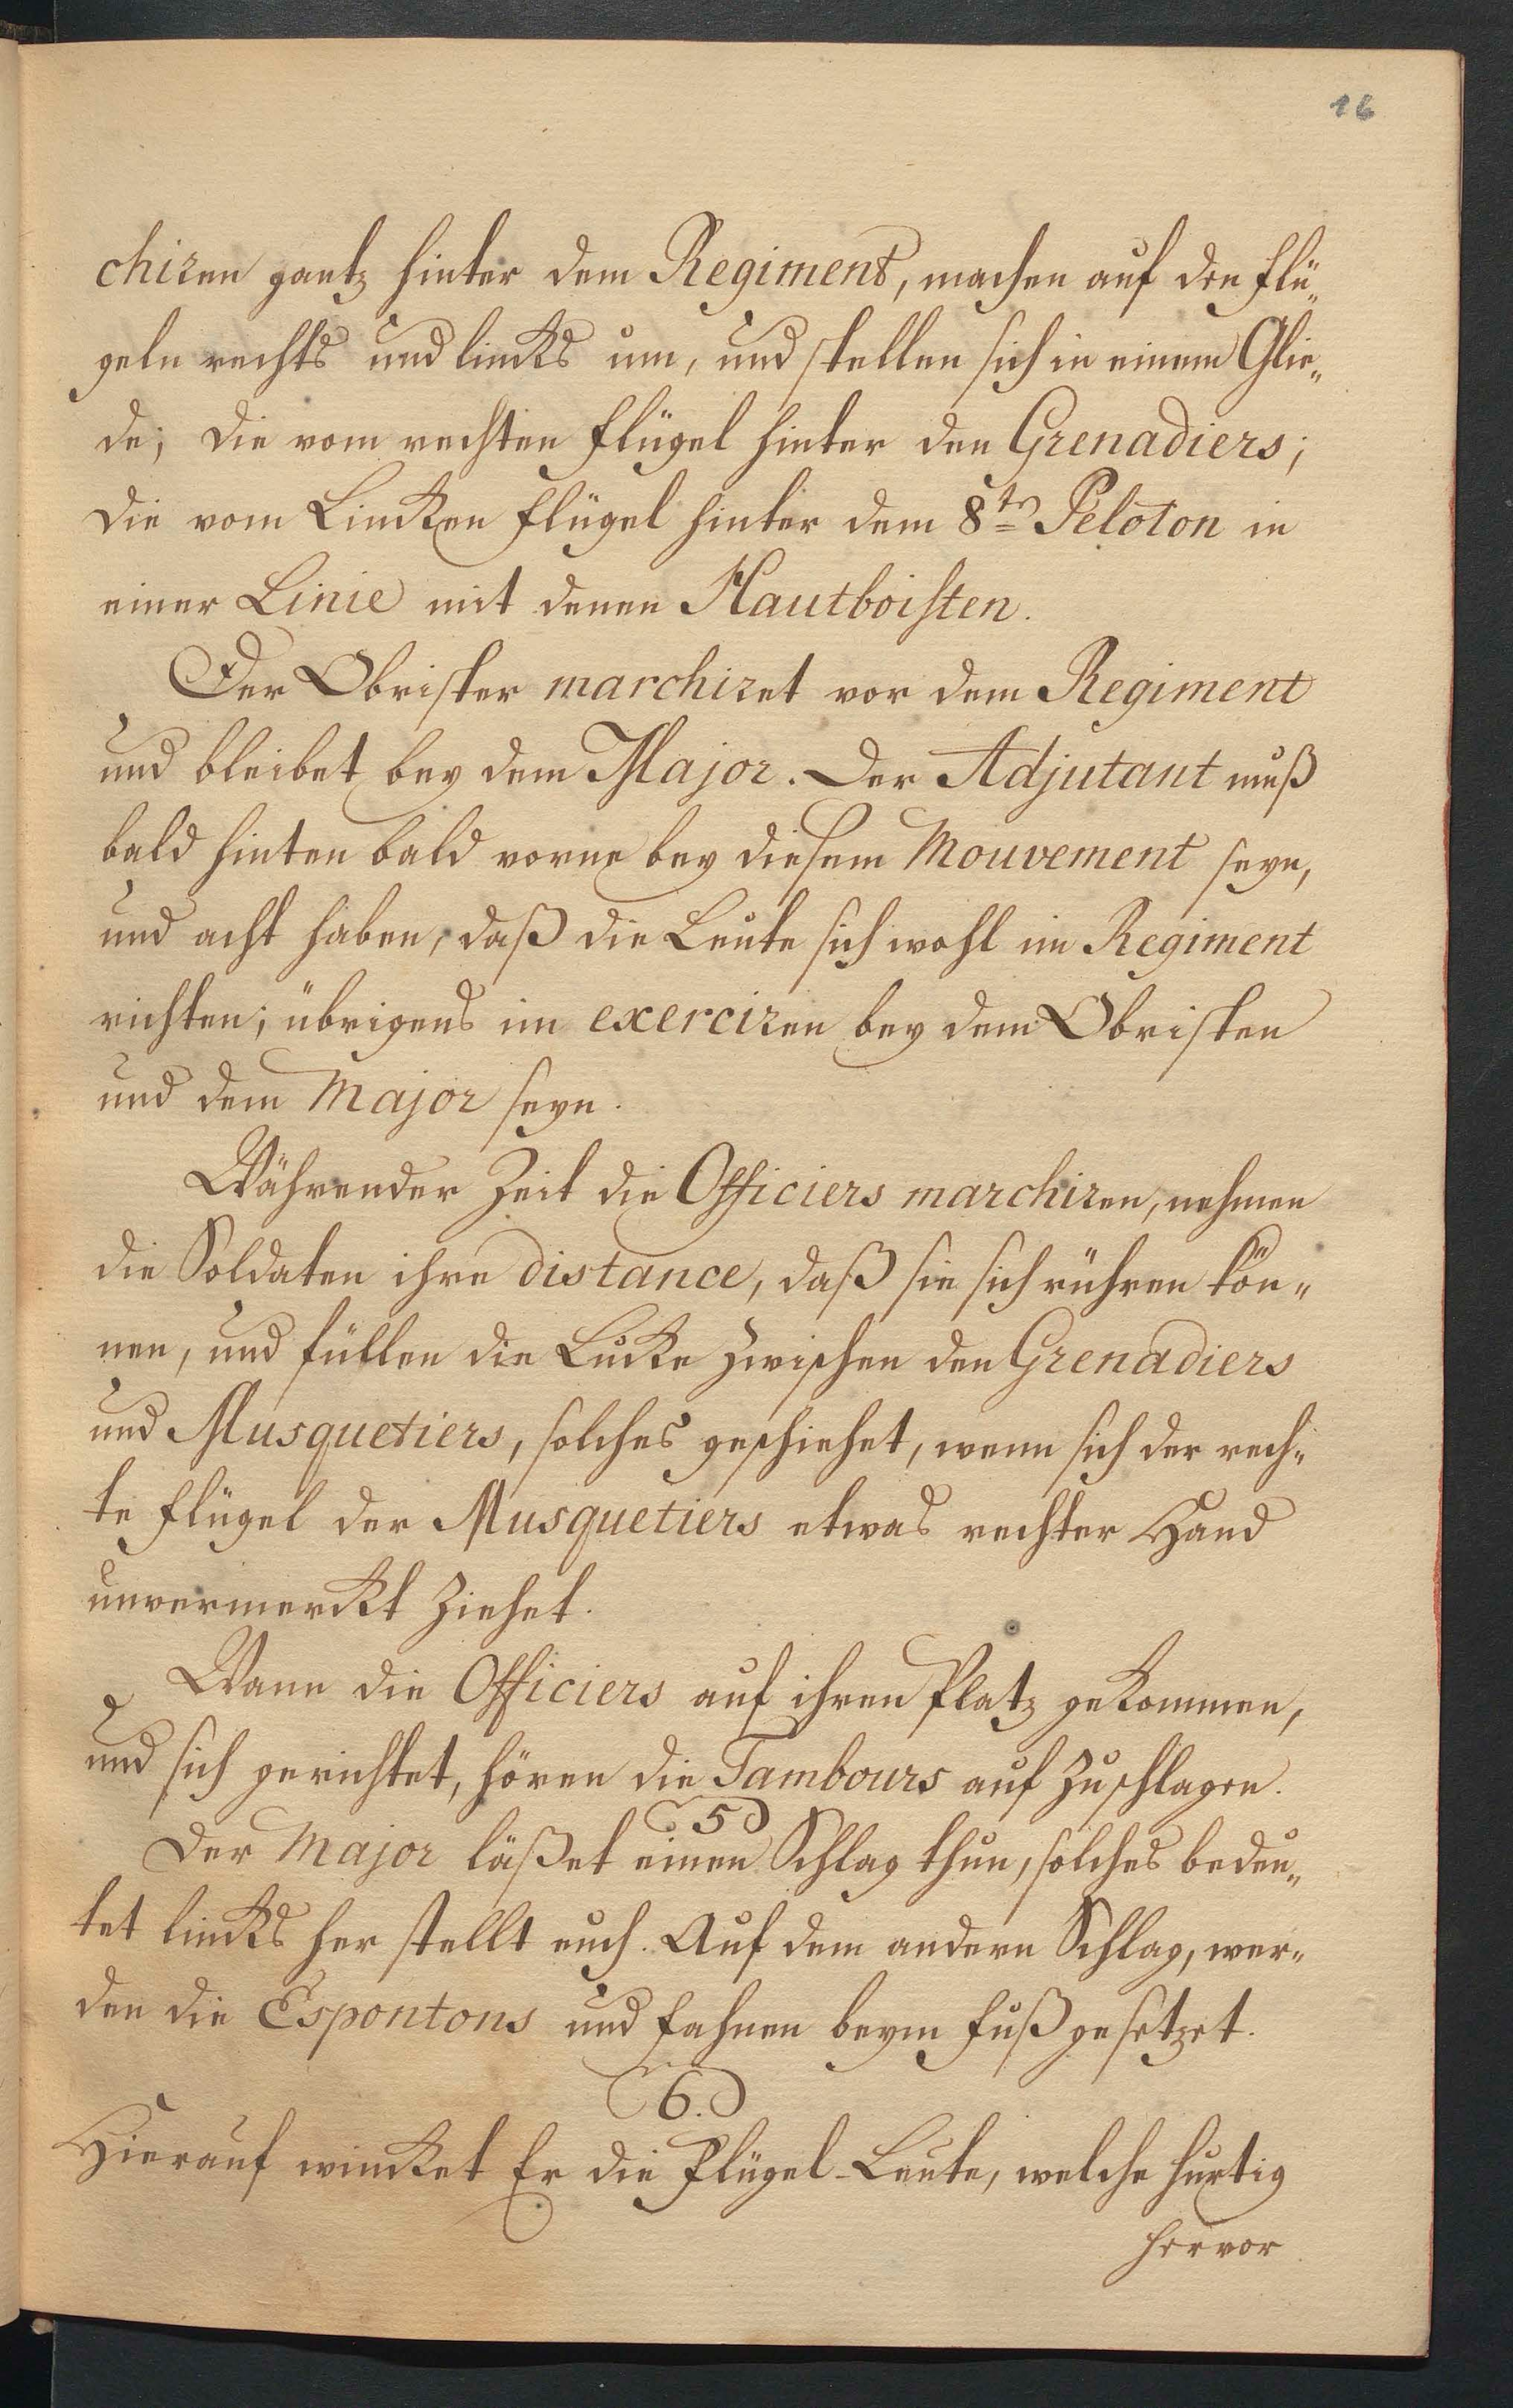 16
chiren gantz hinter dem Regiment, machen auf den Flü„
geln rechts und lincks um, und stellen sich in einem Glie„
de; die vom rechten Flügel hinter den Grenadiers;
die vom Lincken Flügel hinter dem 8ten Peloton in
einer Linie mit denen Hautboisten.
Der Obrister marchiret vor dem Regiment
und bleibet bey dem Major. Der Adjutant muß
bald hinten bald vorne bey diesem Mouvement seyn,
und acht haben, daß die Leute sich wohl im Regiment
richten; übrigens im exerciren bey dem Obristen
und dem Major seyn.
Währender Zeit die Officiers marchiren, nehmen
die Soldaten ihre distance, daß sie sich rühren kön„
nen, und füllen die Lucke zwischen den Grenadiers
und Musquetiers, solches geschiehet, wenn sich der rech„
te Flügel der Musquetiers etwas rechter Hand
unvermerckt ziehet.
Wann die Officiers auf ihren Platz gekommen,
und sich gerichtet, hören die Tambours auf zuschlagen.
5
Der Major läßet einen Schlag thun, solches bedeu„
tet lincks her stellt euch. Auf dem andern Schlag, wer„
den die Espontons und Fahnen beym Fuß gesetzet.
6.
Hierauf wincket Er die Flügel-Leute, welche hurtig
hervor